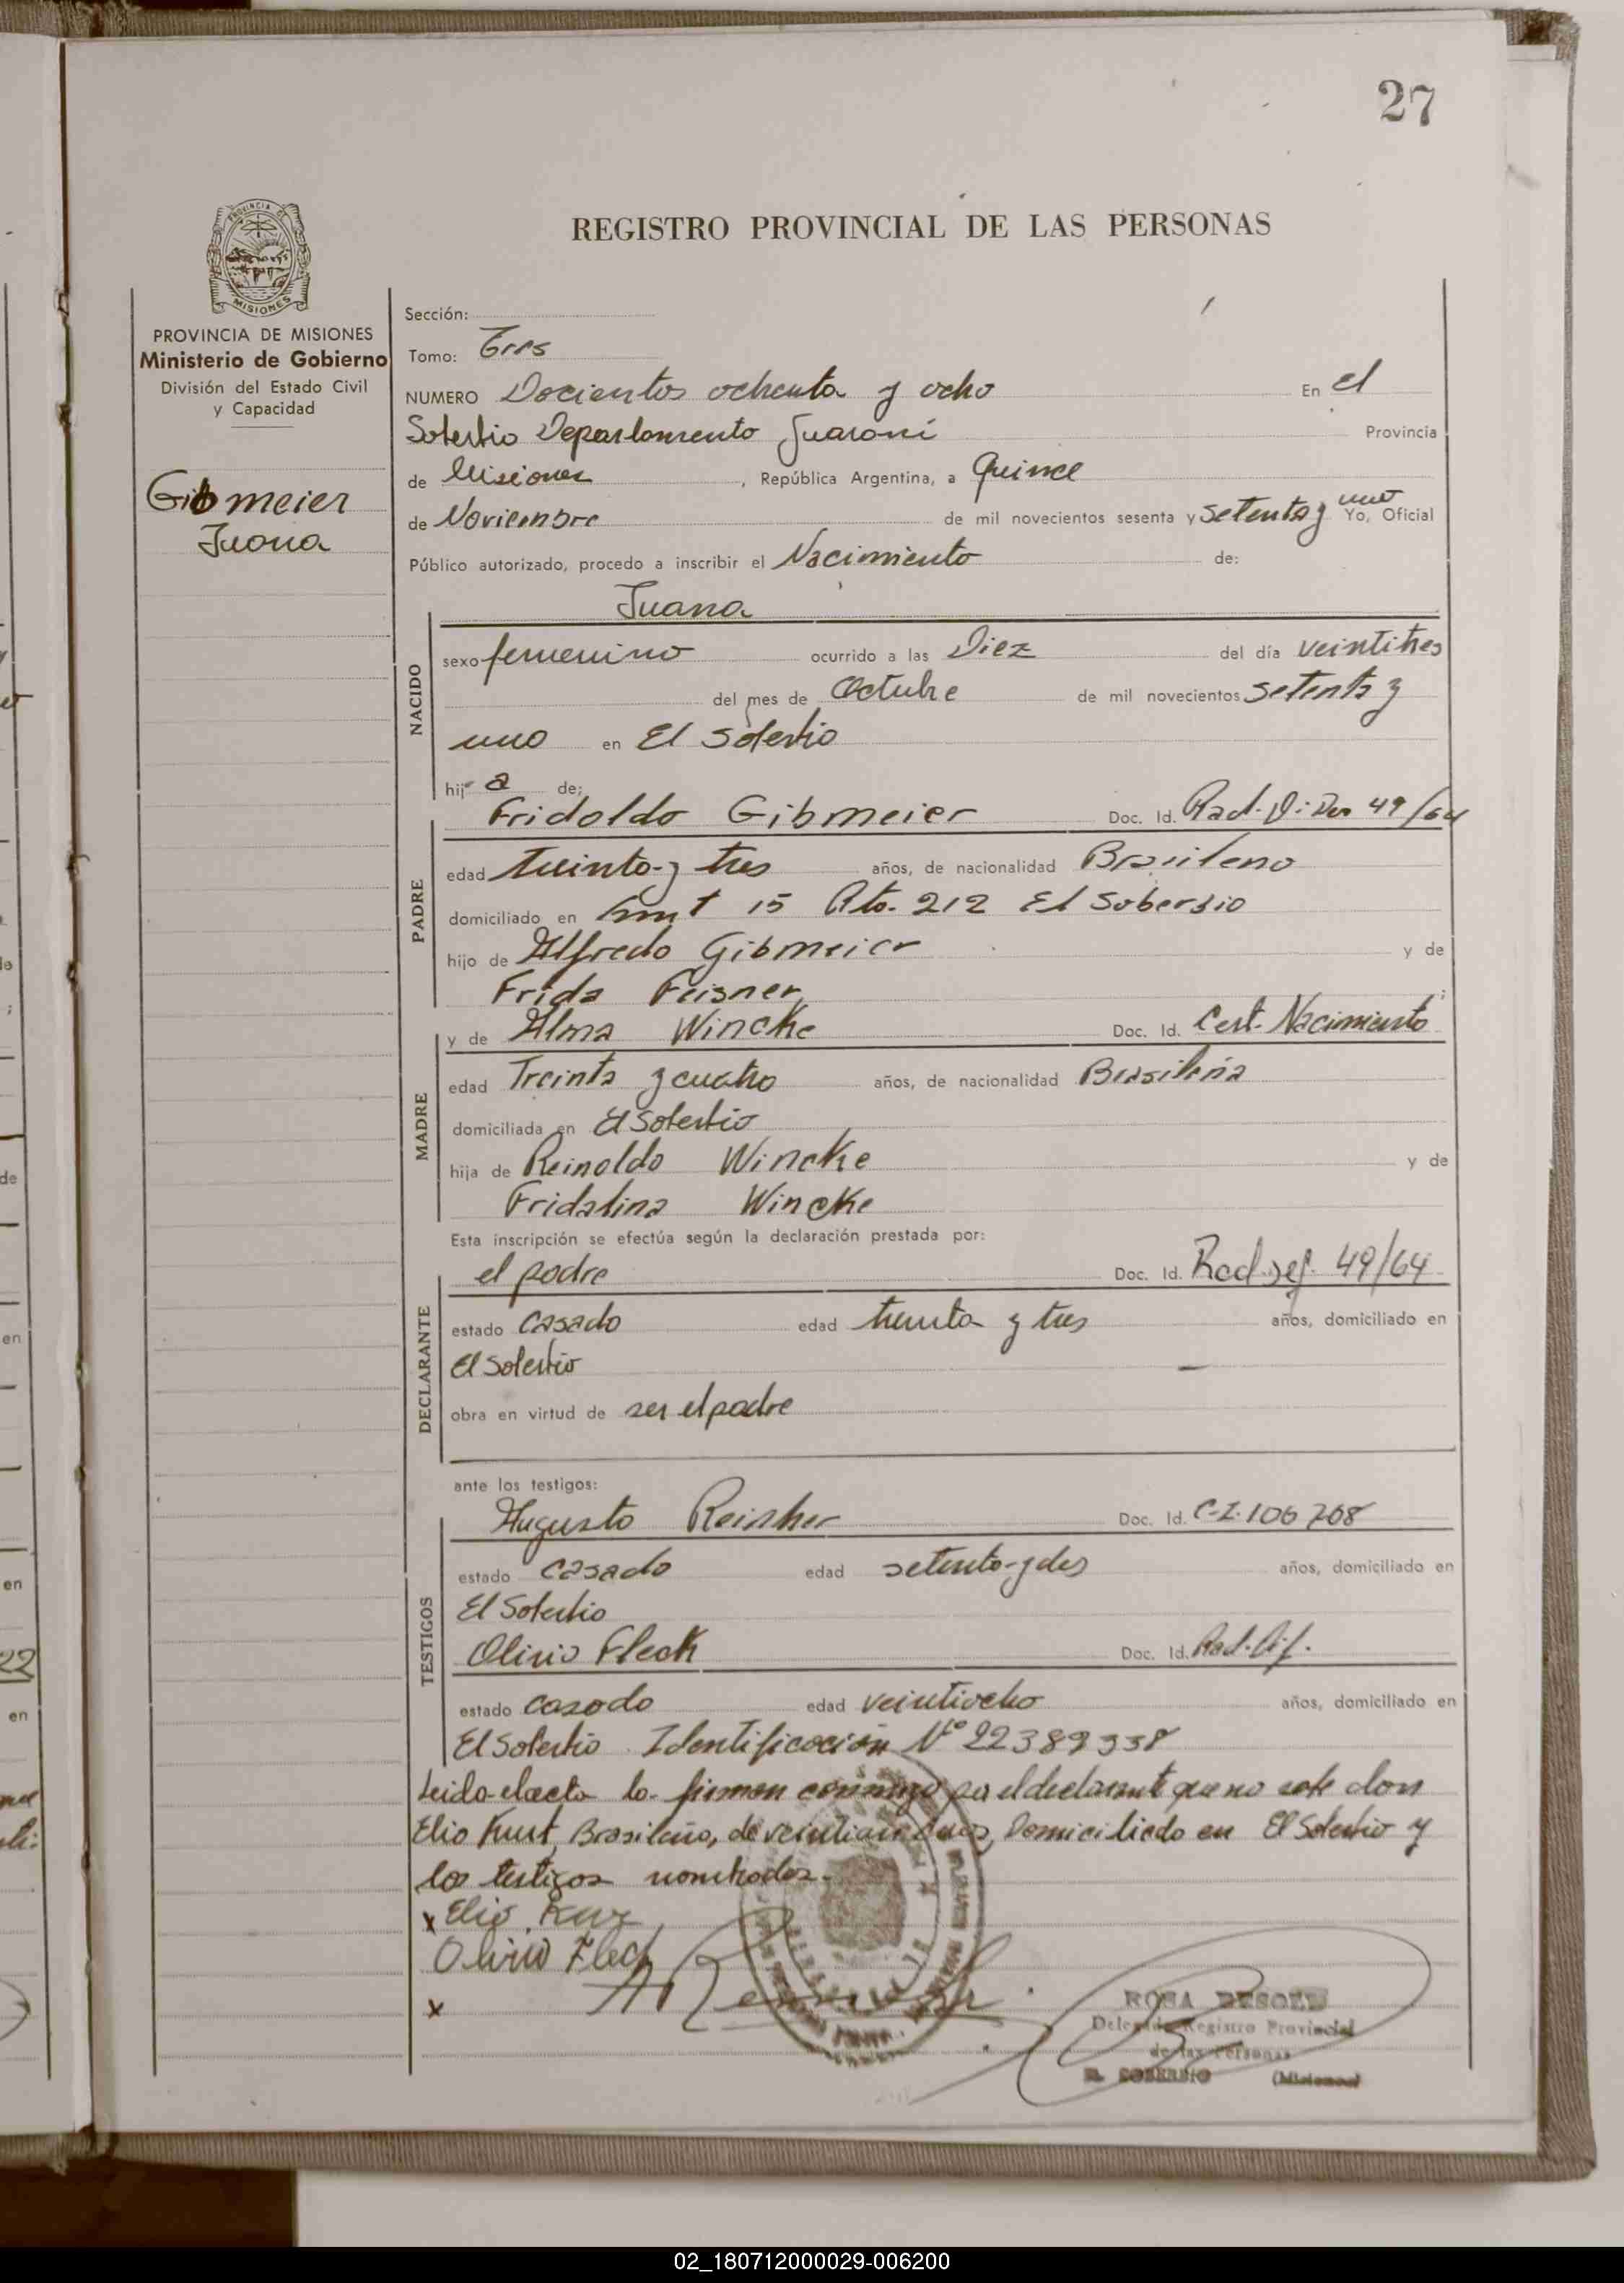 27
PROVINCIA DE
MISIONES
REGISTRO PROVINCIAL DE LAS PERSONAS
PROVINCIA DE MISIONES
Ministerio de Gobierno
División del Estado Civil
y Capacidad
Gibmeier
Juana
Sección:
Tomo: Tres
NUMERO Docientos ochenta y ocho En el
Soberbio Departamento Guaraní Provincia
de Misiones, República Argentina, a Quince
de Noviembre de mil novecientos sesenta y setenta y uno Yo, Oficial
Público autorizado, procedo a inscribir el Nacimiento de:
Juana
NACIDO
sexo femenino ocurrido a las Diez del día veintitres
del mes de Octubre de mil novecientos setenta y
uno en El Soberbio
hij a de;
Fridoldo Gibmeier Doc. Id. Rad. 49/64
PADRE
edad treinta y tres años, de nacionalidad Brasileno
domiciliado en Kmt 15 Rta. 212 El Soberbio
hijo de Alfredo Gibmeier y de
Frida Feisner;
MADRE
y de Alma Wincke Doc. Id. Cert. Nacimiento
edad Treinta y cuatro años, de nacionalidad Brasileña
domiciliada en El Soberbio
hija de Reinoldo Wincke y de
Fridalina Wincke
Esta inscripción se efectúa según la declaración prestada por:
DECLARANTE
el padre Doc. Id. Rad. 49/64
estado casado edad treinta y tres años, domiciliado en
El Soberbio
obra en virtud de ser el padre
ante los testigos:
TESTIGOS
Augusto Doc. Id. C.I. 106768
estado casado edad setenta y dos años, domiciliado en
El Soberbio
Olivio Fleck Doc. Id. Rad.
estado casado edad veintiocho años, domiciliado en
El Soberbio Identificación Nº 22389338
Leida el acta la firman conmigo por el declarante que no sabe don
Elio Kurt, Brasileño, de Domiciliado en El Soberbio y
los testigos nombrados.
x Elio
Olivio Fleck
x
ROSA
Delegada Registro Provincial
de las Personas
EL SOBERBIO (Misiones)
02_180712000029-006200